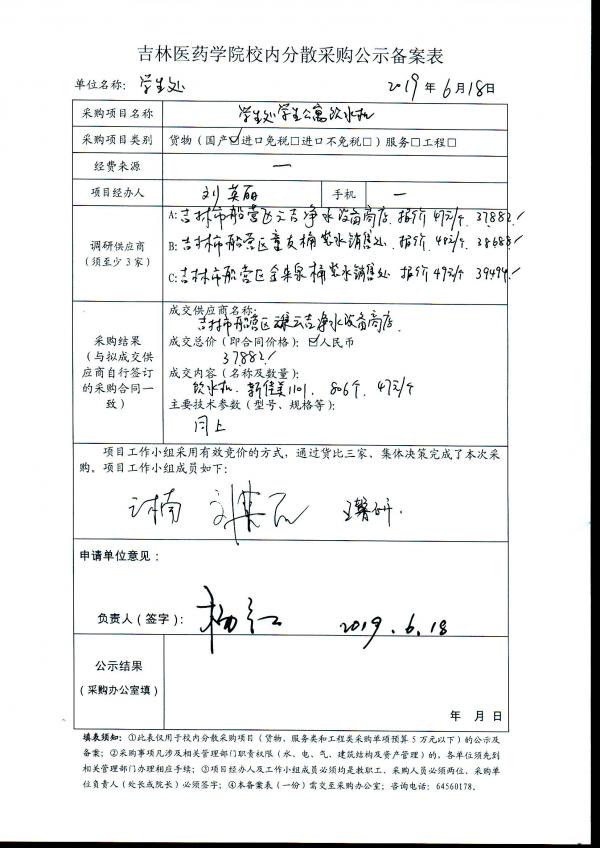 吉林医药学院校内分散采购公示备案表
单位名称：学生处 2019 年 6 月 18 日
采购项目名称 学生处学生公寓饮水机
采购项目类别 货物（国产☑进口免税□进口不免税□）服务□工程□
经费来源 一
项目经办人 刘英丽 手机 一
调研供应商
（须至少 3 家）
A: 吉林市船营区云吉净水设备商店. 报价 47元/个 37882./
B: 吉林市船营区童友桶装水销售处. 报价. 48元/个. 38688./
C: 吉林市船营区金来泉桶装水销售处 报价 49元/个 39494./
采购结果
（与拟成交供
应商自行签订
的采购合同一
致）
成交供应商名称：
吉林市船营区云吉净水设备商店.
成交总价（即合同价格）：☑人民币
37882./
成交内容（名称及数量）：
饮水机. 新佳美1101. 806个. 47元/个
主要技术参数（型号、规格等）：
同上
项目工作小组采用有效竞价的方式，通过货比三家、集体决策完成了本次采
购。项目工作小组成员如下：
刘英丽 王馨研.
申请单位意见：
负责人（签字）： 杨红 2019.6.18
公示结果
（采购办公室填）
年 月 日
填表须知：①此表仅用于校内分散采购项目（货物、服务类和工程类采购单项预算 5 万元以下）的公示及
备案；②采购事项凡涉及相关管理部门职责权限（水、电、气、建筑结构及资产管理）的，各单位须先到
相关管理部门办理相应手续；③项目经办人及工作小组成员必须均是教职工、采购人员必须两位、采购单
位负责人（处长或院长）必须签字；④本备案表（一份）需交至采购办公室；咨询电话：64560178。